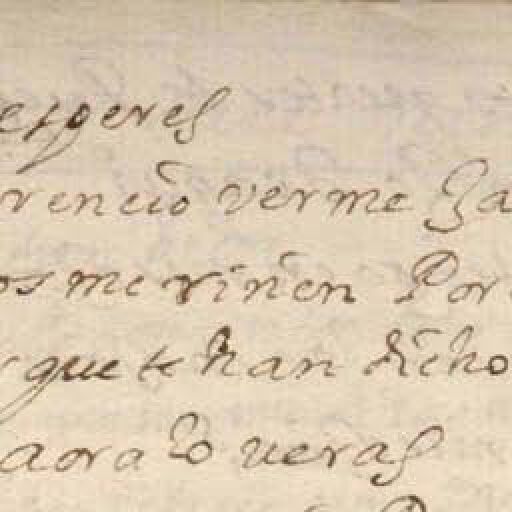 esperes
rencio verme Ha
os me riñen Por
que te han dicho
aora lo veras